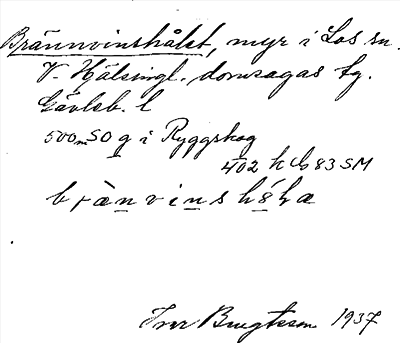 Brännvinshålet, myr i Los sn.
V. Hälsingl. domsagas tg.
Gävleb. l
500m SO g i Ryggskog
402 h cb 83 SM
brànvinshóla
Ivar Bengtsson 1937